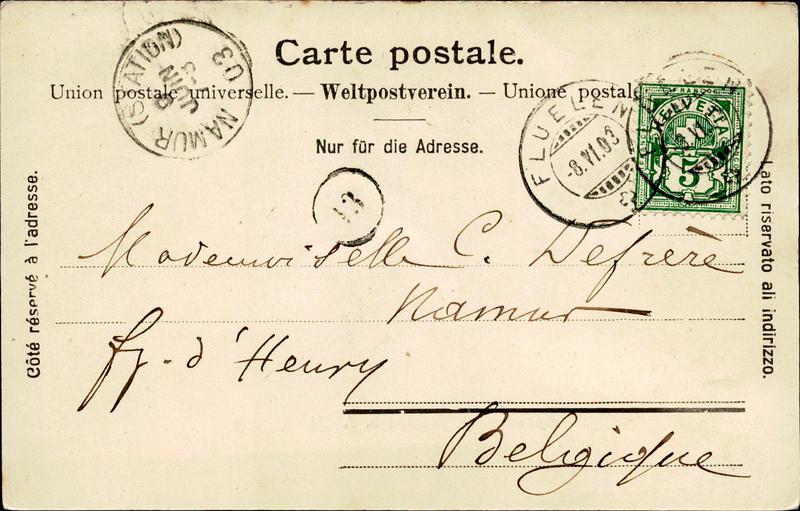 Carte postale.
Union postale universelle. — Weltpostverein. — Unione postale
Nur für die Adresse.
NAMUR (STATION)
JUIN
03
FLUELEN
-8.VI.03
FLUELEN
HELVETIA
5
13
Côté réservé à l'adresse.
Lato riservato ali indirizzo.
Mademoiselle C. Defrère
Namur
fg. d'Heury
Belgique